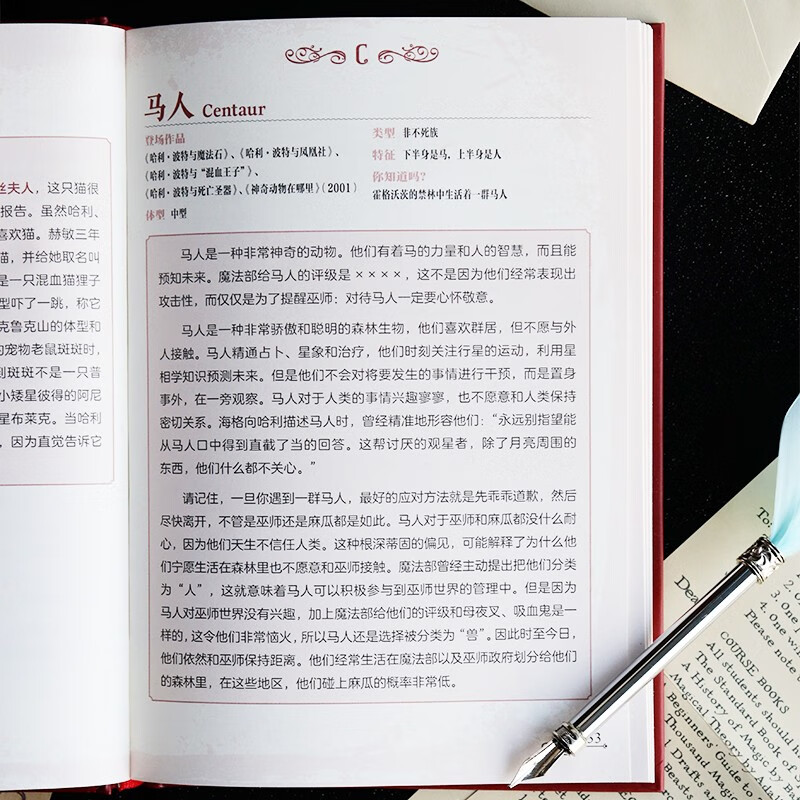 丝夫人，这只猫很
报告。虽然哈利、
喜欢猫。赫敏三年
猫，并给她取名叫
是一只混血猫狸子
型吓了一跳，称它
克鲁克山的体型和
的宠物老鼠斑斑时，
到斑斑不是一只普
小矮星彼得的阿尼
星布莱克。当哈利
，因为直觉告诉它
C
马人 Centaur
登场作品
《哈利·波特与魔法石》、《哈利·波特与凤凰社》、
《哈利·波特与“混血王子”》、
《哈利·波特与死亡圣器》、《神奇动物在哪里》（2001）
体型 中型
类型 非不死族
特征 下半身是马，上半身是人
你知道吗？
霍格沃茨的禁林中生活着一群马人
马人是一种非常神奇的动物。他们有着马的力量和人的智慧，而且能
预知未来。魔法部给马人的评级是××××，这不是因为他们经常表现出
攻击性，而仅仅是为了提醒巫师：对待马人一定要心怀敬意。
马人是一种非常骄傲和聪明的森林生物，他们喜欢群居，但不愿与外
人接触。马人精通占卜、星象和治疗，他们时刻关注行星的运动，利用星
相学知识预测未来。但是他们不会对将要发生的事情进行干预，而是置身
事外，在一旁观察。马人对于人类的事情兴趣寥寥，也不愿意和人类保持
密切关系。海格向哈利描述马人时，曾经精准地形容他们：“永远别指望能
从马人口中得到直截了当的回答。这帮讨厌的观星者，除了月亮周围的
东西，他们什么都不关心。”
请记住，一旦你遇到一群马人，最好的应对方法就是先乖乖道歉，然后
尽快离开，不管是巫师还是麻瓜都是如此。马人对于巫师和麻瓜都没什么耐
心，因为他们天生不信任人类。这种根深蒂固的偏见，可能解释了为什么他
们宁愿生活在森林里也不愿意和巫师接触。魔法部曾经主动提出把他们分类
为“人”，这就意味着马人可以积极参与到巫师世界的管理中。但是因为
马人对巫师世界没有兴趣，加上魔法部给他们的评级和母夜叉、吸血鬼是一
样的，这令他们非常恼火，所以马人还是选择被分类为“兽”。因此时至今日，
他们依然和巫师保持距离。他们经常生活在魔法部以及巫师政府划分给他们
的森林里，在这些地区，他们碰上麻瓜的概率非常低。
53
To:
Dea
2. O
3. One
4. One wi
Please note
COURSE BOOKS
All students should h
The Standard Book of
A History of Magic
Magical Theory by Ad
Beginners Guide to
Thousand Magic
Draft
Beasts